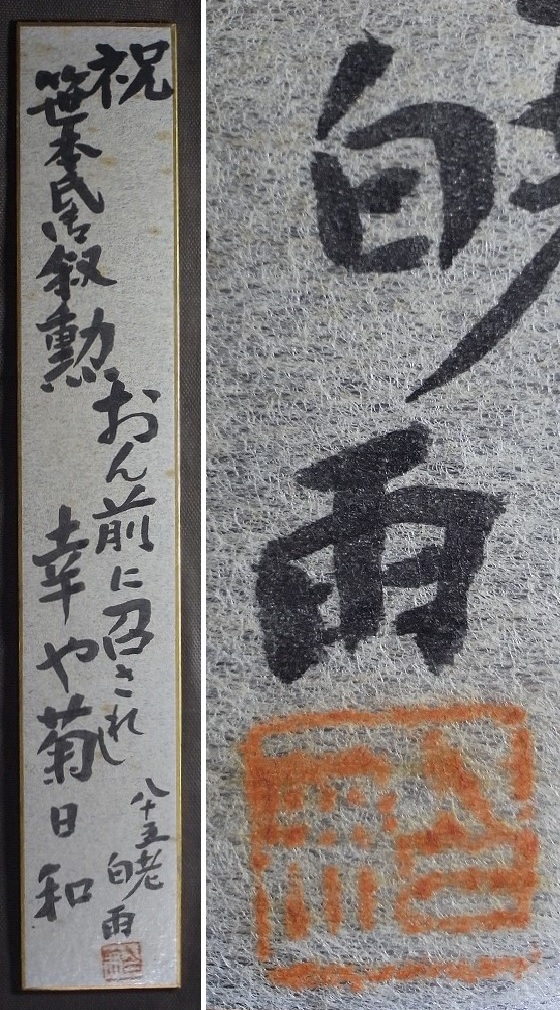 祝
笹本氏御叙勲
おん前に召されし
幸や菊日和
八十五老
白雨
白雨
白雨